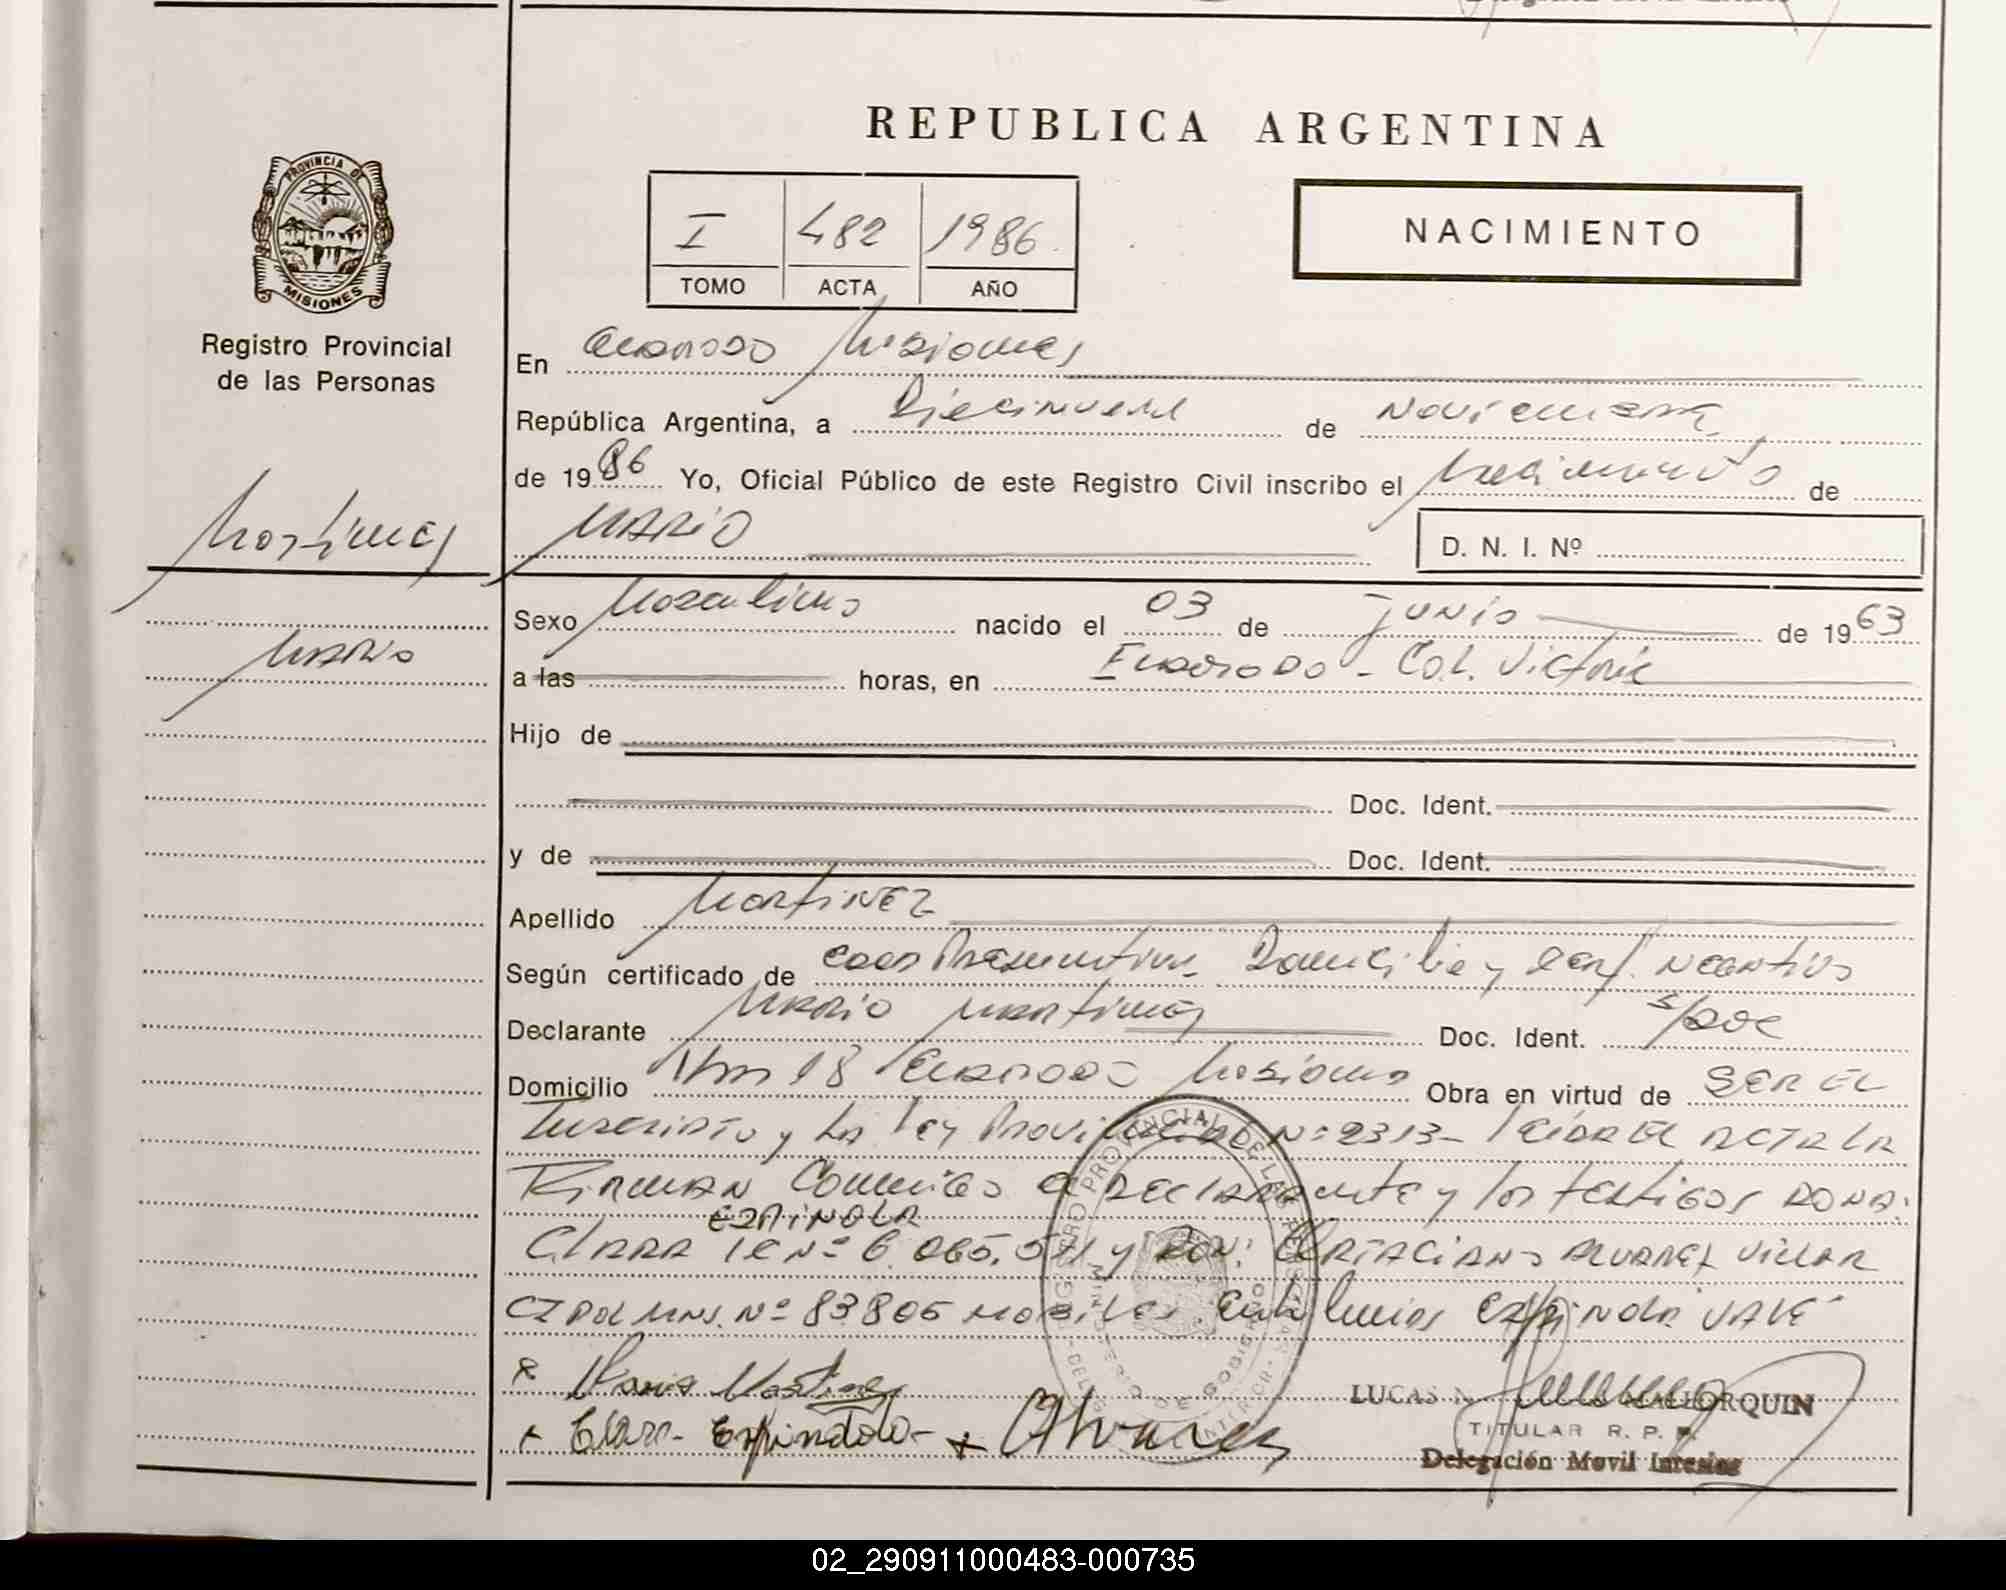 REPUBLICA ARGENTINA
PROVINCIA DE
MISIONES
Registro Provincial
de las Personas
I 482 1986
TOMO ACTA AÑO
NACIMIENTO
En Eldorado Misiones
República Argentina, a Diecinueve de Noviembre
de 1986 Yo, Oficial Público de este Registro Civil inscribo el Nacimiento de
Martinez
MARIO
D. N. I. Nº
Sexo Masculino nacido el 03 de junio de 1963
MARIO
a las horas, en Eldorado - Col. Victoria
Hijo de
Doc. Ident.
y de Doc. Ident.
Apellido Martinez
Según certificado de Domicilio y cert. Negativo
Declarante Mario Martinez Doc. Ident. s/doc
Domicilio Km 18 Eldorado Misiones Obra en virtud de SER EL
Inscripto y la ley Provincial Nº 2313 - leida EL ACTA LA
Firman Conmigo el Declarante y los testigos DOÑA:
ESPINOLA
CLARA Nº y DON: ALVAREZ VILLAR
CI POL MNS. Nº 83.805 ESPINOLA VALE
x Mario Martinez
x Clara Espindola x Alvarez
LUCAS MALLORQUIN
TITULAR R. P.
Delegación Movil
02_290911000483-000735